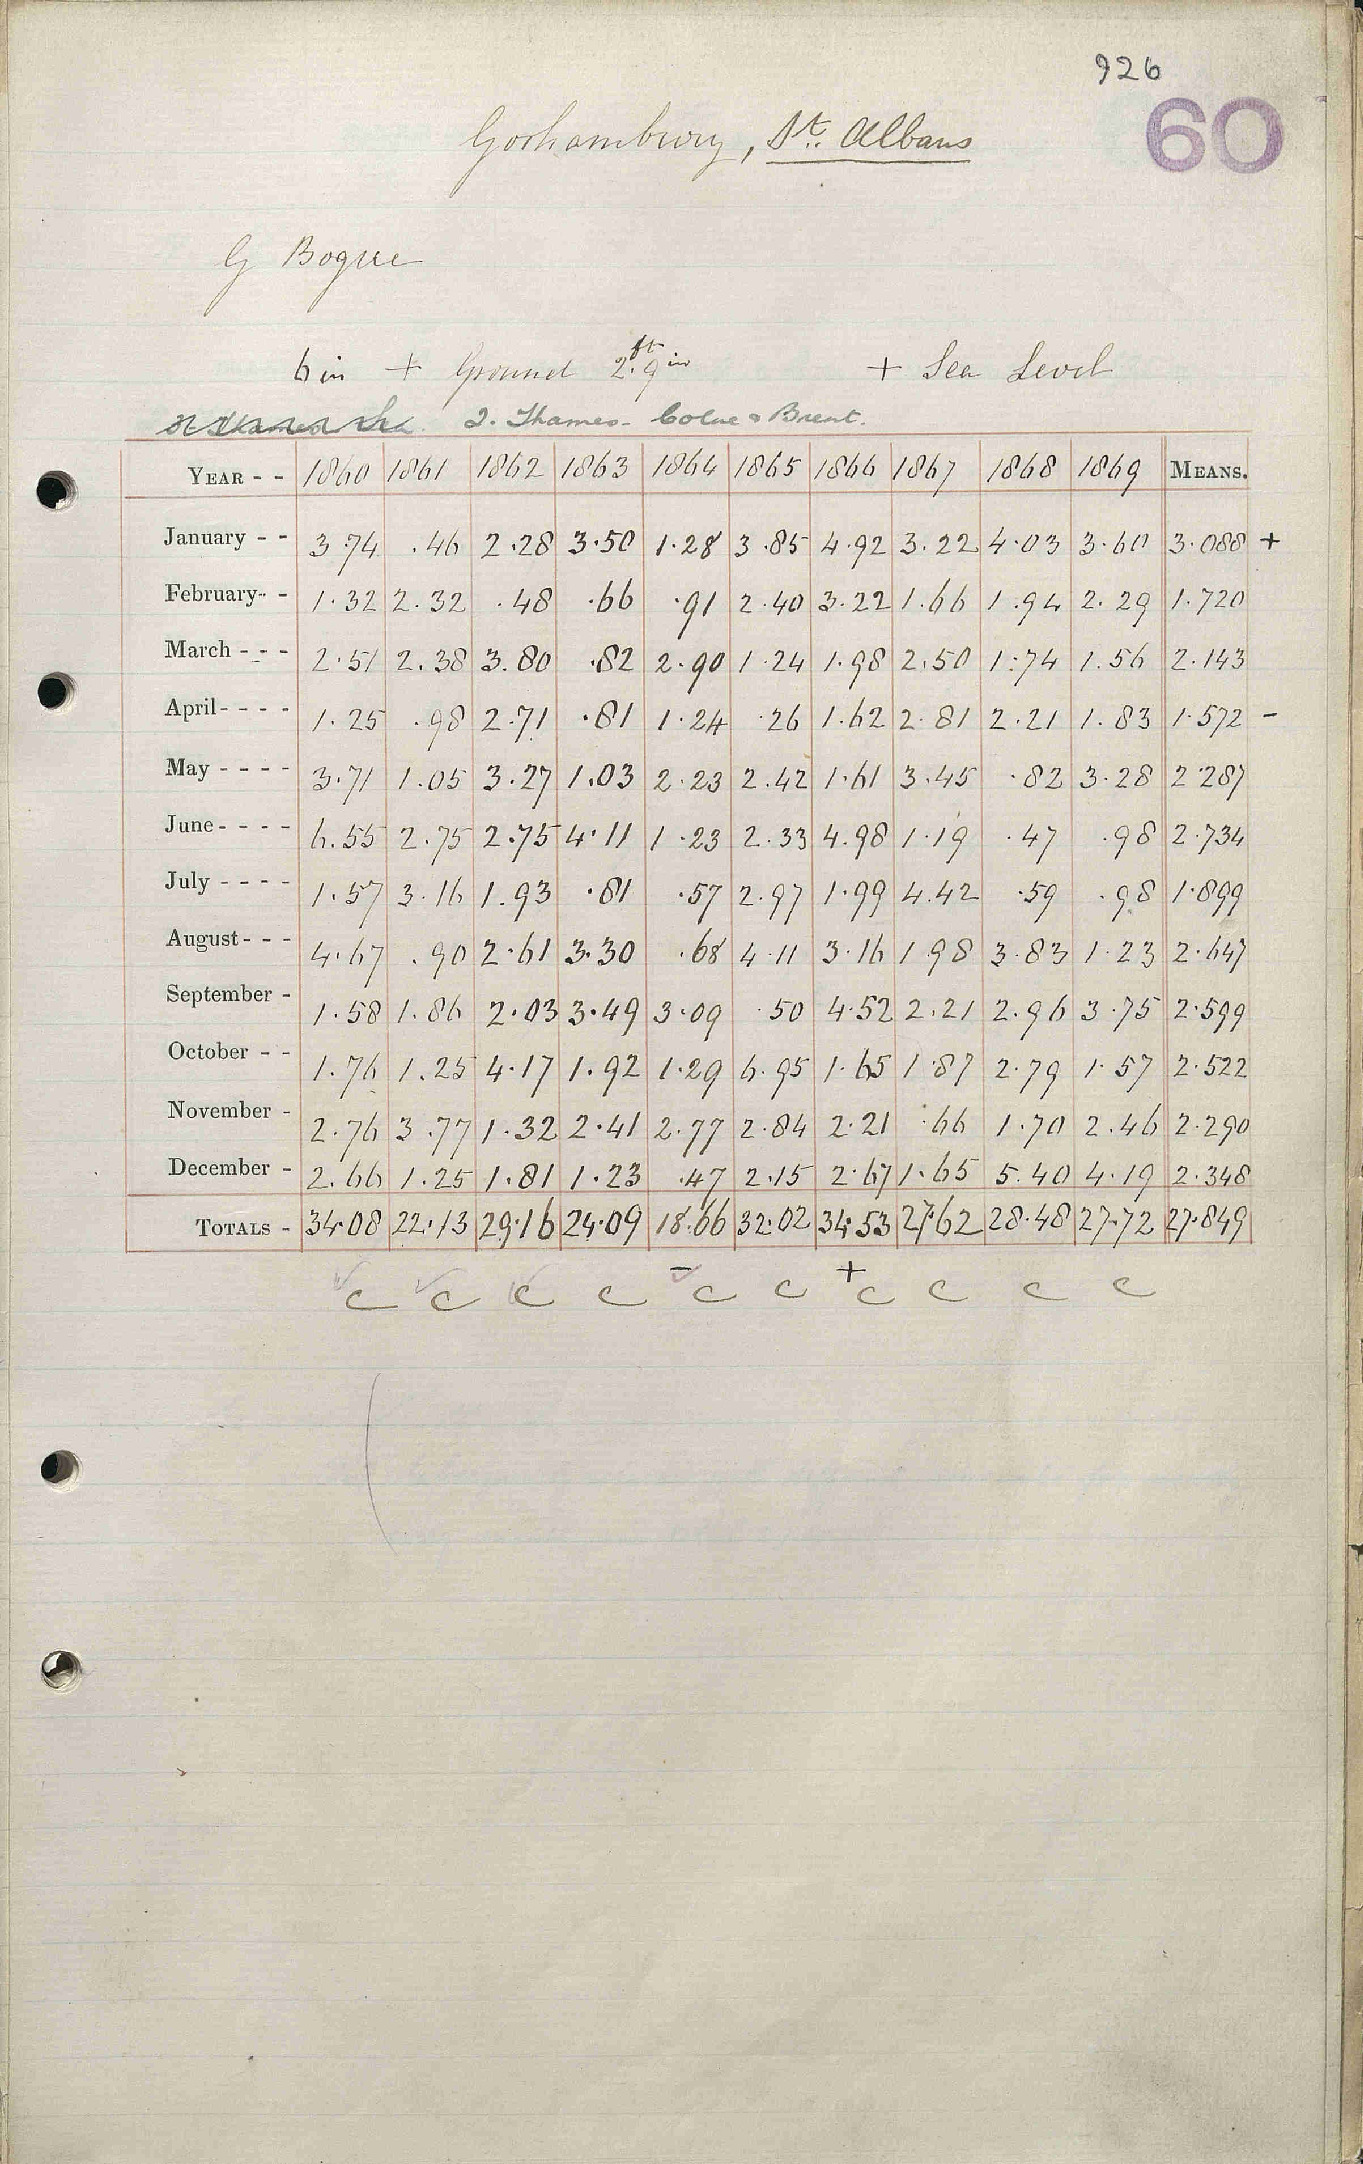 926
60
Gorhambury, St. Albans
G Bogue
6 in + Ground 2ft. 9in + Sea Level
2. Thames - Colne & Brent.
YEAR - - 1860 1861 1862 1863 1864 1865 1866 1867 1868 1869 MEANS.
January - - 3.74 .46 2.28 3.50 1.28 3.85 4.92 3.22 4.03 3.60 3.088 +
February- - 1.32 2.32 .48 .66 .91 2.40 3.22 1.66 1.94 2.29 1.720
March - - - 2.51 2.38 3.80 .82 2.90 1.24 1.98 2.50 1.74 1.56 2.143
April- - - - 1.25 .98 2.71 .81 1.24 .26 1.62 2.81 2.21 1.83 1.572 -
May - - - - 3.71 1.05 3.27 1.03 2.23 2.42 1.61 3.45 .82 3.28 2.287
June- - - - 6.55 2.75 2.75 4.11 1.23 2.33 4.98 1.19 .47 .98 2.734
July - - - - 1.57 3.16 1.93 .81 .57 2.97 1.99 4.42 .59 .98 1.899
August- - - 4.67 .90 2.61 3.30 .68 4.11 3.16 1.98 3.83 1.23 2.647
September - 1.58 1.86 2.03 3.49 3.09 .50 4.52 2.21 2.96 3.75 2.599
October - - 1.76 1.25 4.17 1.92 1.29 6.95 1.65 1.87 2.79 1.57 2.522
November - 2.76 3.77 1.32 2.41 2.77 2.84 2.21 .66 1.70 2.46 2.290
December - 2.66 1.25 1.81 1.23 .47 2.15 2.67 1.65 5.40 4.19 2.348
TOTALS - 34.08 22.13 29.16 24.09 18.66 32.02 34.53 27.62 28.48 27.72 27.849
- +
c c c c c c c c c c